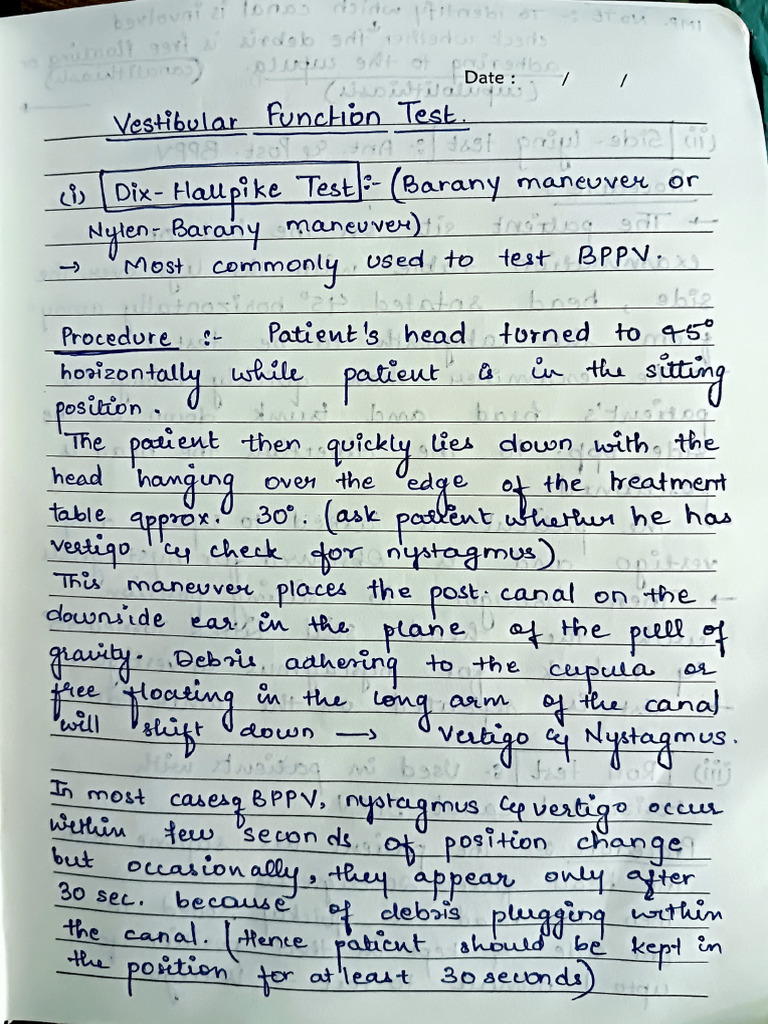 Date : / /
Vestibular Function Test.
(i) Dix-Hallpike Test :- (Barany maneuver or
Nylen-Barany maneuver)
→ Most commonly used to test BPPV.
Procedure :- Patient's head turned to 45°
horizontally while patient is in the sitting
position.
The patient then quickly lies down with the
head hanging over the edge of the treatment
table approx. 30°. (ask patient whether he has
vertigo & check for nystagmus)
This maneuver places the post. canal on the
downside ear in the plane of the pull of
gravity. Debris adhering to the cupula or
free floating in the long arm of the canal
will shift down → Vertigo & Nystagmus.
In most cases of BPPV, nystagmus & vertigo occur
within few seconds of position change
but occasionally, they appear only after
30 sec. because of debris plugging within
the canal. (Hence patient should be kept in
the position for at least 30 seconds)